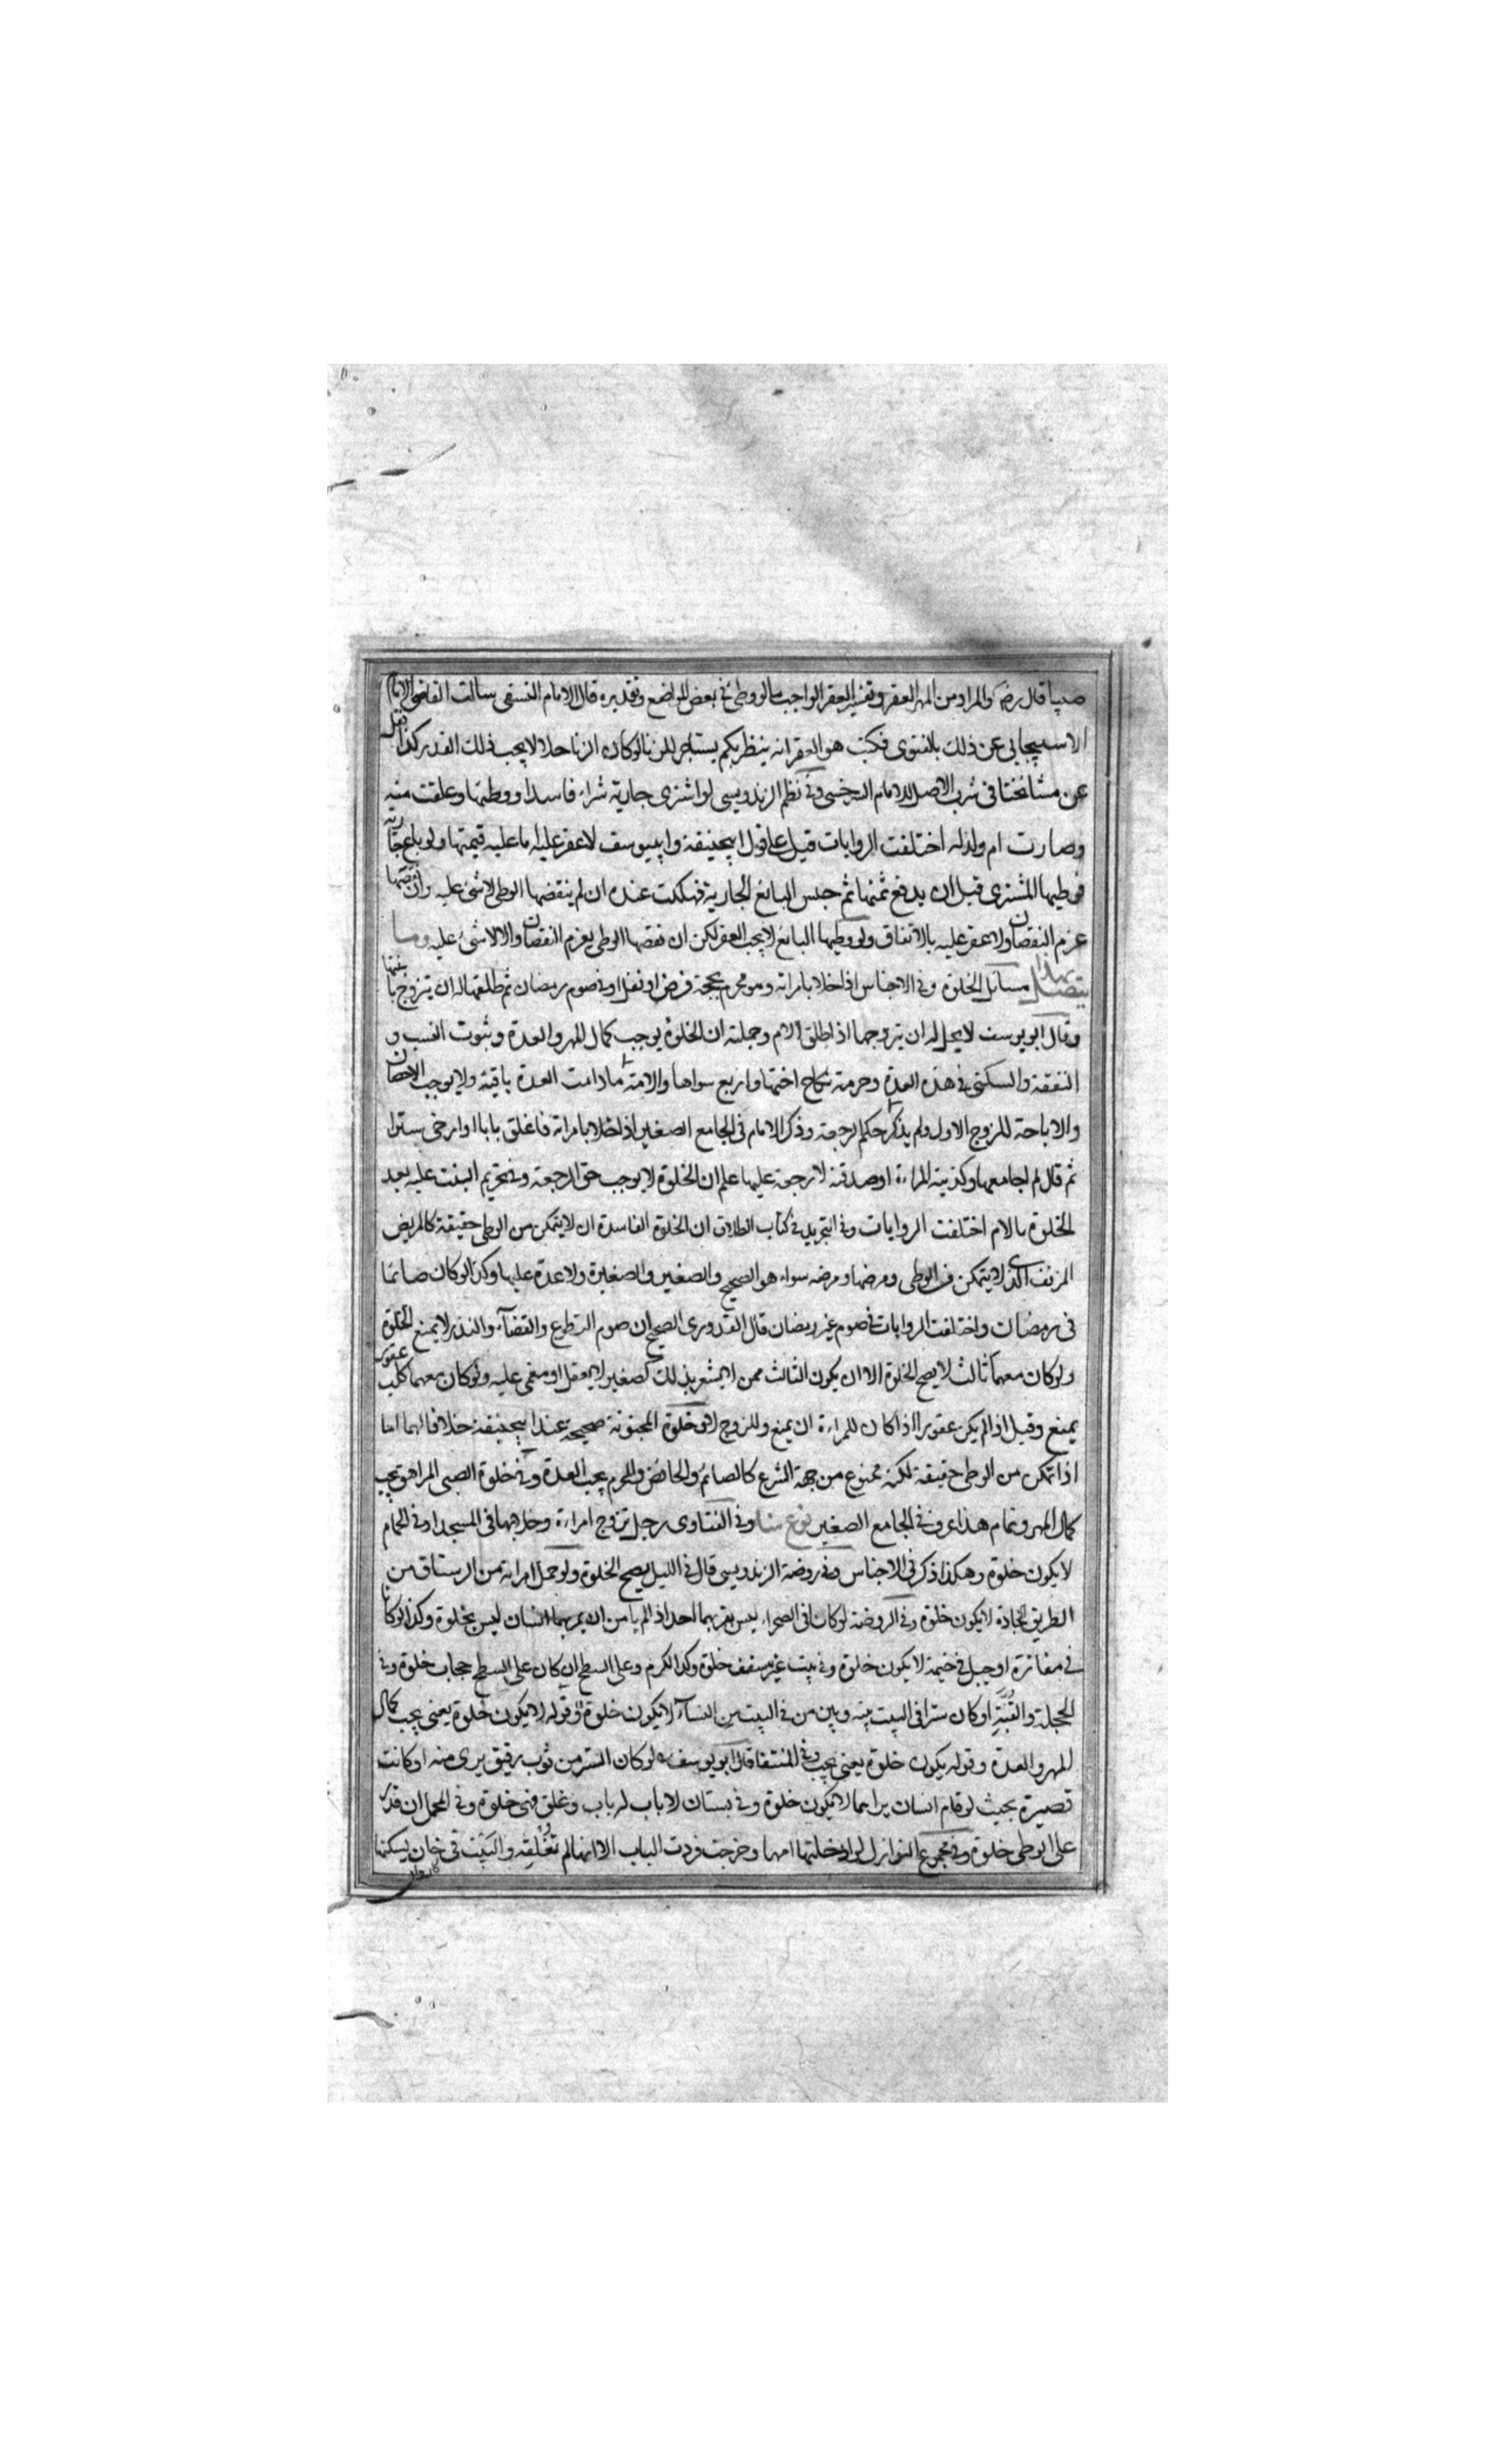 صبيا قال رضه والمراد من المهر العقر وتفسير العقر الواجب بالوطى فى بعض المواضع وتقديره قال الامام النسفى سالت القاضى الامام
الاسبيجابى عن ذلك بالفتوى فكتب هو العقر انه ينظر بكم يستاجر للزنا لو كان الزنا حلالا يجب ذلك القدر كذا نقل
عن مشائخنا فى شرب الاصل للامام السرخسى وفى نظم الزندويسى لو اشترى جارية شراء فاسدا ووطئها وعلقت منه
وصارت ام ولد له اختلفت الروايات قيل على قول ابيحنيفة وابييوسف لا عقر عليه ما عليه قيمتها ولو باع جارية
فوطيها المشترى قبل ان يدفع ثمنها ثم حبس البائع الجارية فهلكت عنده ان لم ينقضها الوطى لا شئ عليه وان نقصها
غرم النقصان ولا عقر عليه بالاتفاق ولو وطيها البائع لا يجب العقر لكن ان نقصها الوطى يغرم النقصان والا لا شئ عليه وما
يتصل بهذا مسائل الخلوة وفى الاجناس اذا خلا بامراته وهو محرم بحجة فرض او نفل او فى صوم رمضان ثم طلقها له ان يتزوج بابنتها
وقال ابو يوسف لا يحل له ان يتزوجها اذا طلق الام وجملته ان الخلوة يوجب كمال المهر والعدة وثبوت النسب و
النفقة والسكنى فى هذه العدة وحرمة نكاح اختها واربع سواها والامة ما دامت العدة باقية ولا يوجب الاحصان
والاباحة للزوج الاول ولم يذكر حكم الرجعة وذكر الامام فى الجامع الصغير اذا خلا بامراته فاغلق بابا او ارخى سترا
ثم قال لم اجامعها وكذبته المراءة او صدقته لا رجعة عليها علم ان الخلوة لا يوجب حق الرجعة وفى تحريم البنت عليه بعد
الخلوة بالام اختلفت الروايات وفى التجريد فى كتاب الطلاق ان الخلوة الفاسدة ان لا يتمكن من الوطى حقيقة كالمريض
المزنف الذى لا يتمكن من الوطى ومرضها ومرضه سواء هو الصحيح والصغير والصغيرة ولا عدة عليها وكذا لو كان صائما
فى رمضان واختلفت الروايات فى صوم غير رمضان قال القدورى الصحيح ان صوم التطوع والقضآء والنذر لا يمنع الخلوة
ولو كان معهما ثالث لا يصح الخلوة الا ان يكون الثالث ممن لا يشعر بذلك كصغير لا يعقل او مغمى عليه ولو كان معهما كلب عقور
يمنع وقيل اذا لم يكن عقورا اذا كان للمراءة ان يمنع وللزوج لا وخلوة المجنونة صحيحة عند ابيحنيفة خلافا لهما اما
اذا تمكن من الوطى حقيقة لكنه ممنوع من جهة الشرع كالصائم والحائض والمحرم يجب العدة وفى خلوة الصبى المراهق يجب
كمال المهر وتمام هذا عرف فى الجامع الصغير نوع منها وفى الفتاوى رجل تزوج امراءة وخلا بها فى المسجد او فى الحمام
لا يكون خلوة وهكذا ذكر فى الاجناس وفى روضة الزندويسى قال فى الليل يصح الخلوة ولو حمل امراته من الرستاق من
الطريق الجادة لا يكون خلوة وفى الروضة لو كانا فى الصحراء ليس بقربهما احد اذا لم يامن ان يمر بهما انسان ليس بخلوة وكذا لو كانا
فى مفازة او جبل فى خيمة لا يكون خلوة وفى بيت غير مسقف خلوة وكذا الكرم وعلى السطح ان كان على السطح حجاب خلوة وفى
الحجلة والقبة او كان سترا فى البيت بينه وبين من فى البيت من النسآء لا يكون خلوة وقوله لا يكون خلوة يعنى يجب كمال
المهر والعدة وقوله يكون خلوة يعنى يجب وفى المنتقا قال ابو يوسف لو كان الستر من ثوب رقيق يرى منه او كانت
قصيرة بحيث لو قام انسان يراهما لا يكون خلوة وفى بستان لا باب له باب وغلق فهى خلوة وفى المحمل ان قدر
على الوطى خلوة وفى مجموع النوازل لو ادخلتها امها وخرجت وردت الباب الا انها لم تغلقه والبيت فى خان يسكنها